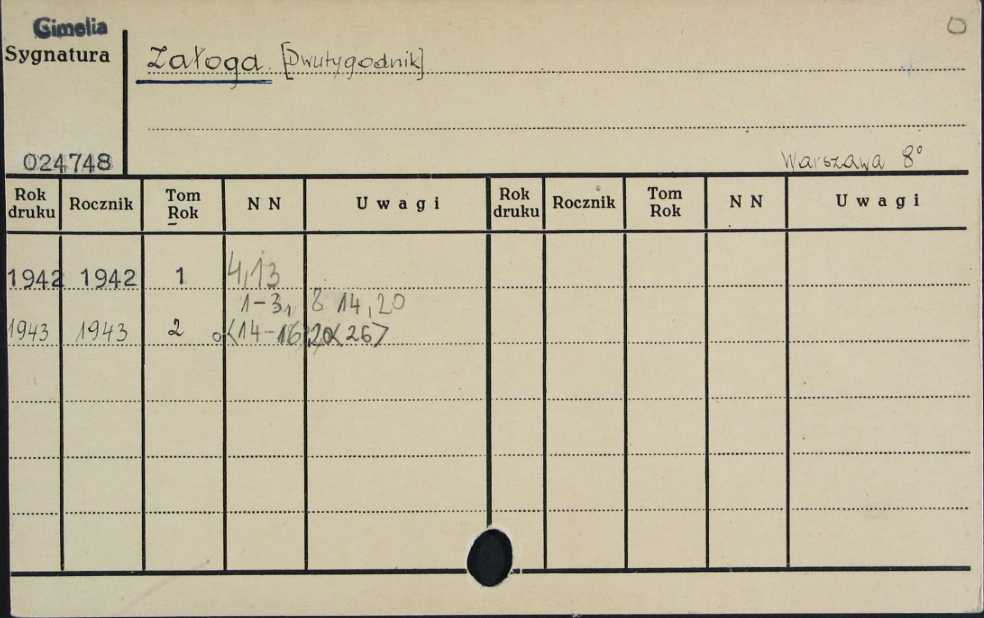 Gimelia
O
Sygnatura
Załoga. [Dwutygodnik]
024748
Warszawa 8°
Rok druku Rocznik Tom Rok NN Uwagi Rok druku Rocznik Tom Rok NN Uwagi
1942 1942 1 4,13
1-3, 8 14, 20
1943 1943 2 <14-16 20 <26>